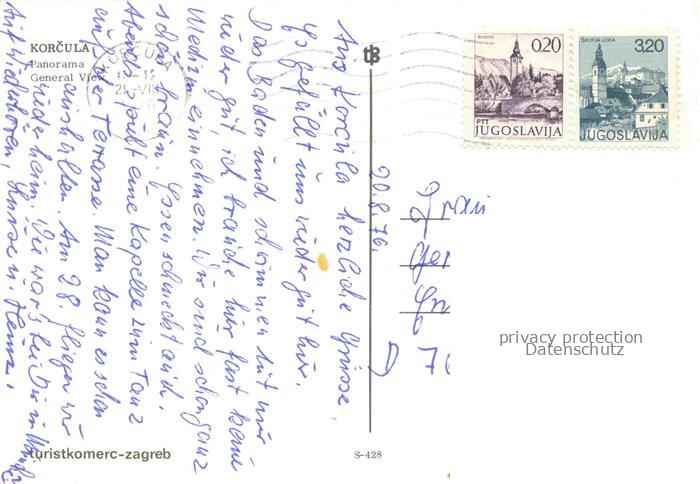 KORČULA
Panorama
General View
KORČULA
21-VIII
tB
0,20
PTT
JUGOSLAVIJA
ŠKOFJA LOKA
3,20
JUGOSLAVIJA
20.8.76.
Aus Korcula herzliche Grüsse.
Es gefällt uns wieder gut hier.
Das Baden und schwimmen tut mir
wieder gut ich brauche hier fast keine
Medizin einnehmen. Wir sind schon ganz
schön braun. Essen schmeckt auch.
Abends spielt eine Kapelle zum Tanz
auf der Terasse. Man kann es schon
aushalten. Am 28. fliegen wir
wieder heim. Wie war's bei Dir in
Auf Wiedersehen,
Frau
D 7
privacy protection
Datenschutz
turistkomerc-zagreb
S-428